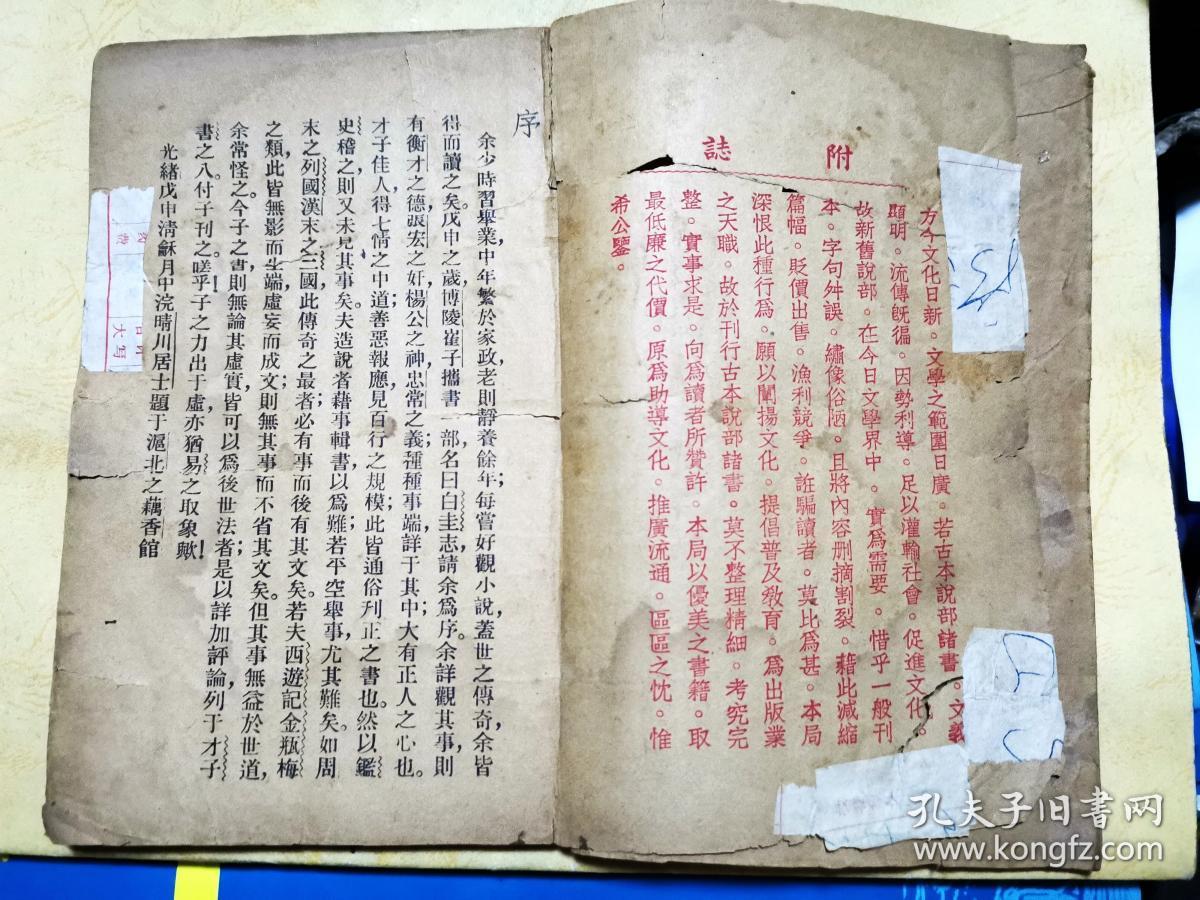 附誌
方今文化日新。文學之範圍日廣。若古本說部諸書。文義
顯明。流傳旣徧。因勢利導。足以灌輸社會。促進文化。
故新舊說部。在今日文學界中。實爲需要。惜乎一般刊
本。字句舛誤。繡像俗陋。且將內容删摘割裂。藉此減縮
篇幅。貶價出售。漁利競爭。誑騙讀者。莫此爲甚。本局
深恨此種行爲。願以闡揚文化。提倡普及敎育。爲出版業
之天職。故於刊行古本說部諸書。莫不整理精細。考究完
整。實事求是。向爲讀者所贊許。本局以優美之書籍。取
最低廉之代價。原爲助導文化。推廣流通。區區之忱。惟
希公鑒。
序
余少時習舉業，中年繁於家政，老則靜養餘年，每嘗好觀小說，蓋世之傳奇，余皆
得而讀之矣。戊申之歲，博陵崔子攜書 部，名曰白圭志，請余爲序。余詳觀其事，則
有衡才之德，張宏之奸，楊公之神，忠常之義，種種事端，詳于其中，大有正人之心也。
才子佳人，得七情之中道；善惡報應，見百行之規模；此皆通俗刋正之書也。然以鑑
史稽之，則又未見其事矣。夫造說者，藉事輯書以爲難；若平空舉事，尤其難矣。如周
末之列國，漢末之三國，此傳奇之最者，必有事而後有其文矣。若夫西遊記金瓶梅
之類，此皆無影而生端，虛妄而成文，則無其事而不省其文矣。但其事無益於世道，
余常怪之。今子之書，則無論其虛實，皆可以爲後世法者；是以詳加評論，列于才子
書之八，付子刊之。嗟乎！子之力出于虛，亦猶易之取象歟！
光緒戊申淸龢月中浣晴川居士題于滬北之藕香館
大写
孔夫子旧书网
www.kongfz.com